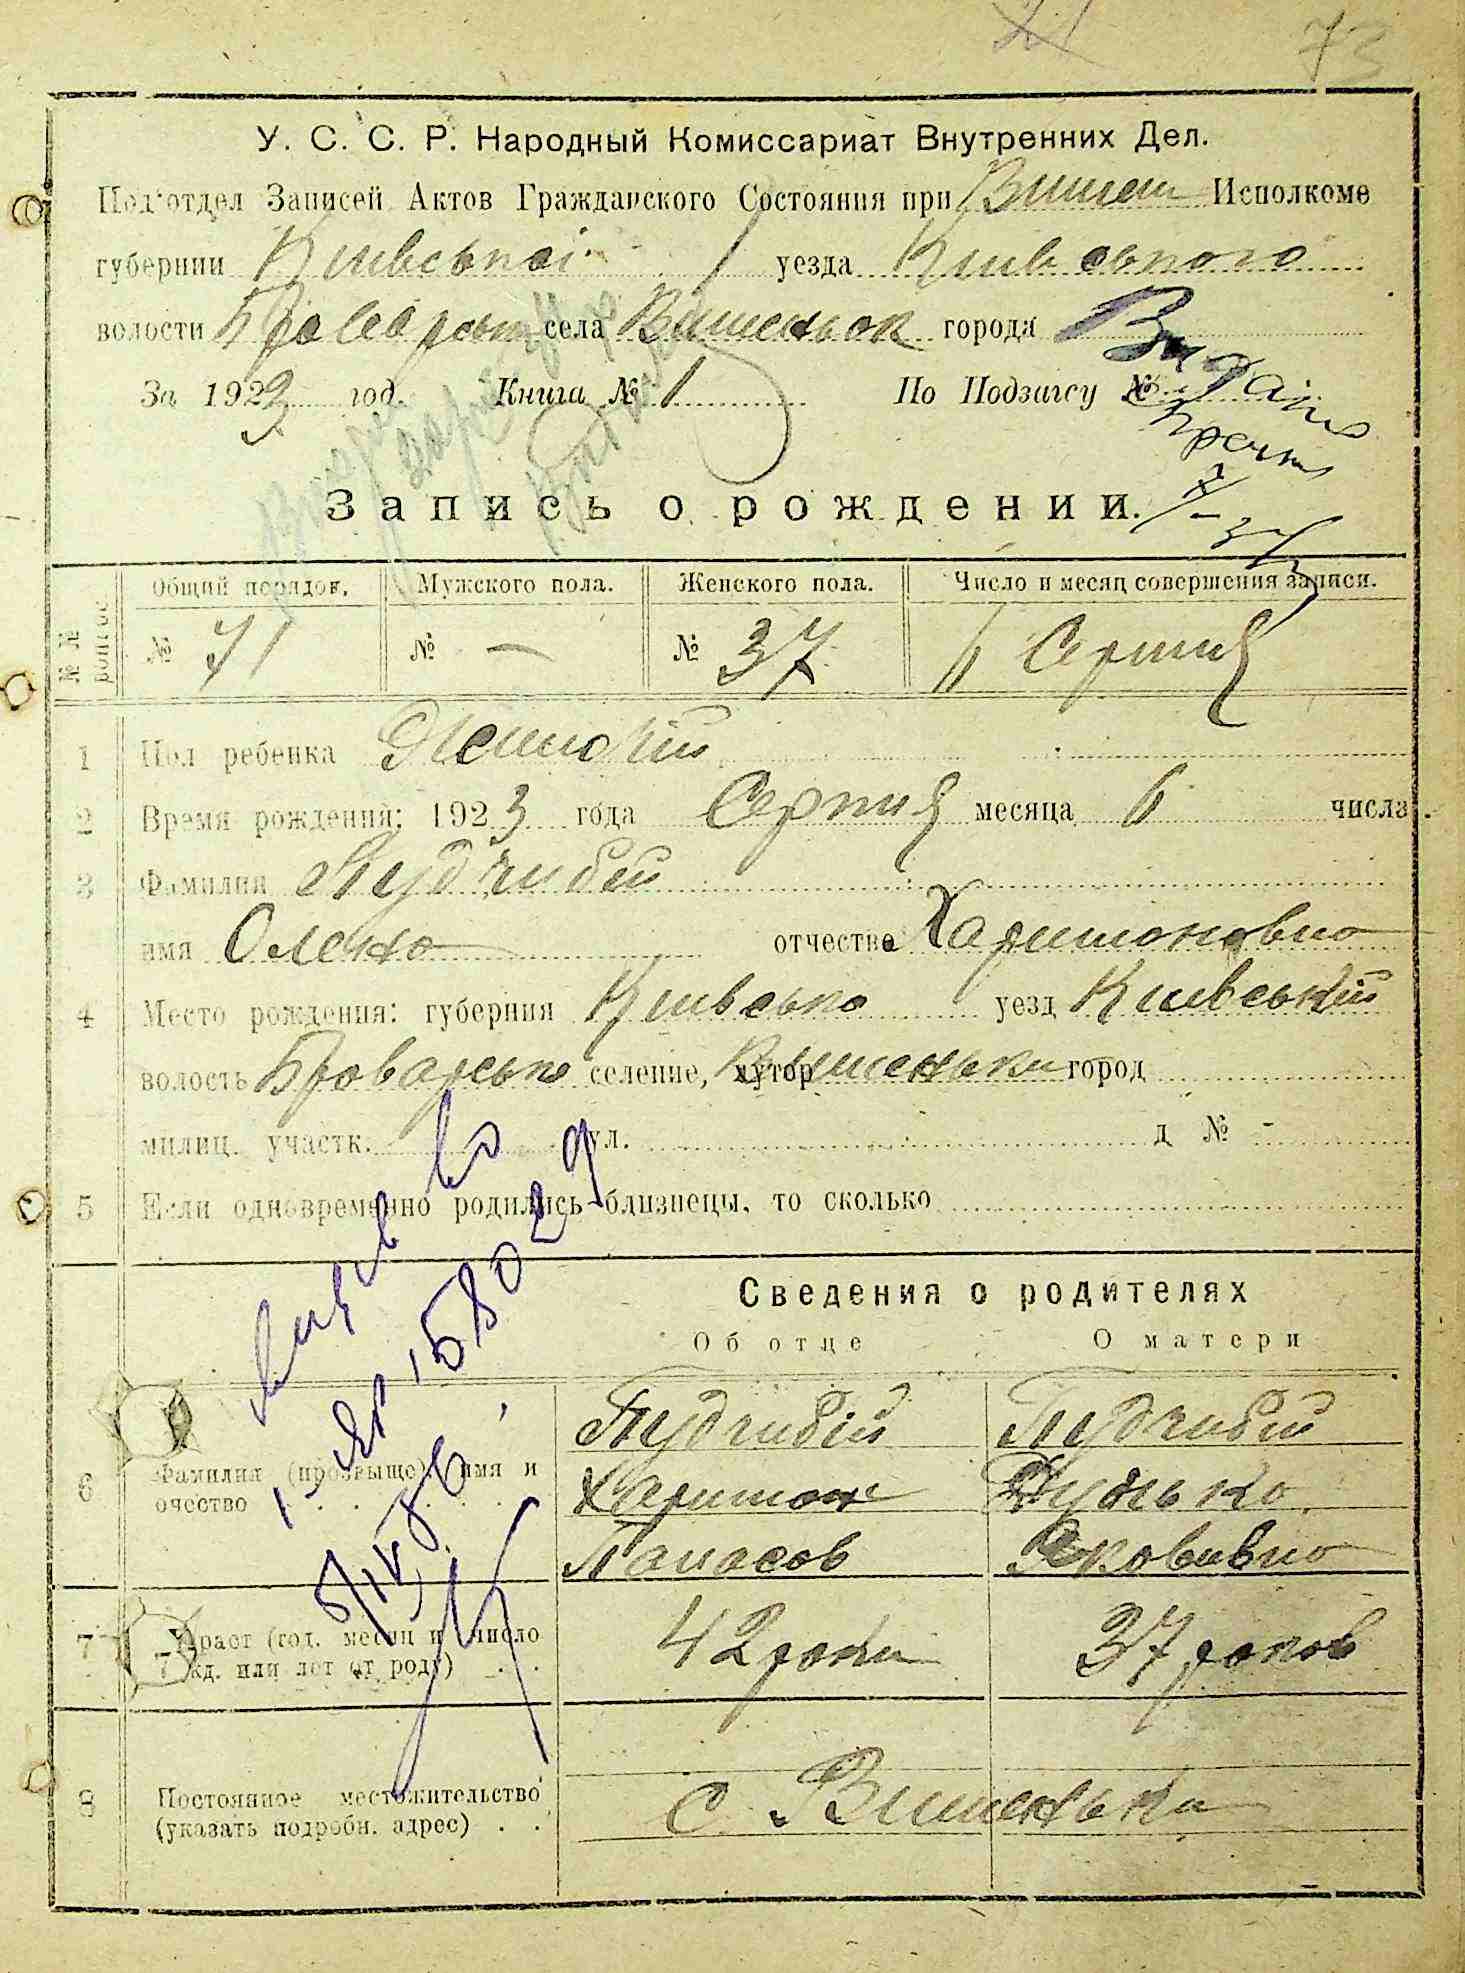 73
У. С. С. Р. Народный Комиссариат Внутренних Дел.
Под'отдел Записей Актов Гражданского Состояния при Вишен Исполкоме
губернии Київської уезда Київського
волости Броварськ села Вишеньок города
За 1923 год. Книга № 1 По Подзагсу №
Видано
Запись о рождении.
№ № Общий порядов. Мужского пола. Женского пола. Число и месяц совершения записи.
№ 71 № — № 37 6 Серпня
1 Пол ребенка Женский
2 Время рождения: 1923 года Серпня месяца 6 числа
3 Фамилия Пудчибій
имя Олена отчество Харитоновна
4 Место рождения: губерния Київська уезд Київський
волость Броварська селение, хутор Вишеньки город
милиц. участк. ул. д № -
5 Если одновременно родились близнецы, то сколько
Сведения о родителях
Об отце О матери
6 Фамилия (прозвище), имя и очество
Пудчибій Пудчибій
Харитон
Панасов Яковивна
7 Возраст (год. месяц и число рожд. или лет от роду) 42 роки 37 роков
8 Постоянное местожительство (указать подробн. адрес) с. Вишеньки